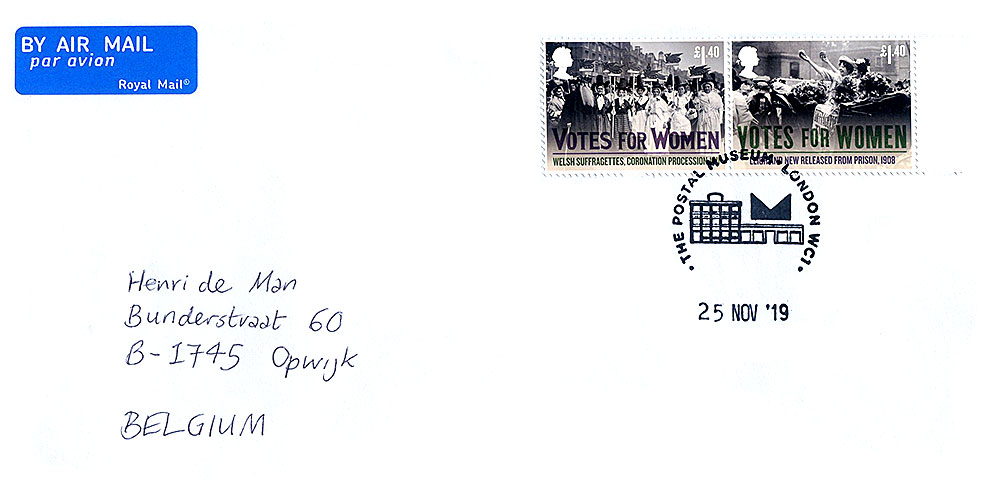 BY AIR MAIL
par avion
Royal Mail®
£1.40
£1.40
VOTES FOR WOMEN
WELSH SUFFRAGETTES, CORONATION PROCESSION
VOTES FOR WOMEN
AND NEW RELEASED FROM PRISON, 1908
• THE POSTAL MUSEUM • LONDON WC1 •
25 NOV '19
Henri de Man
Bunderstraat 60
B-1745 Opwijk
BELGIUM